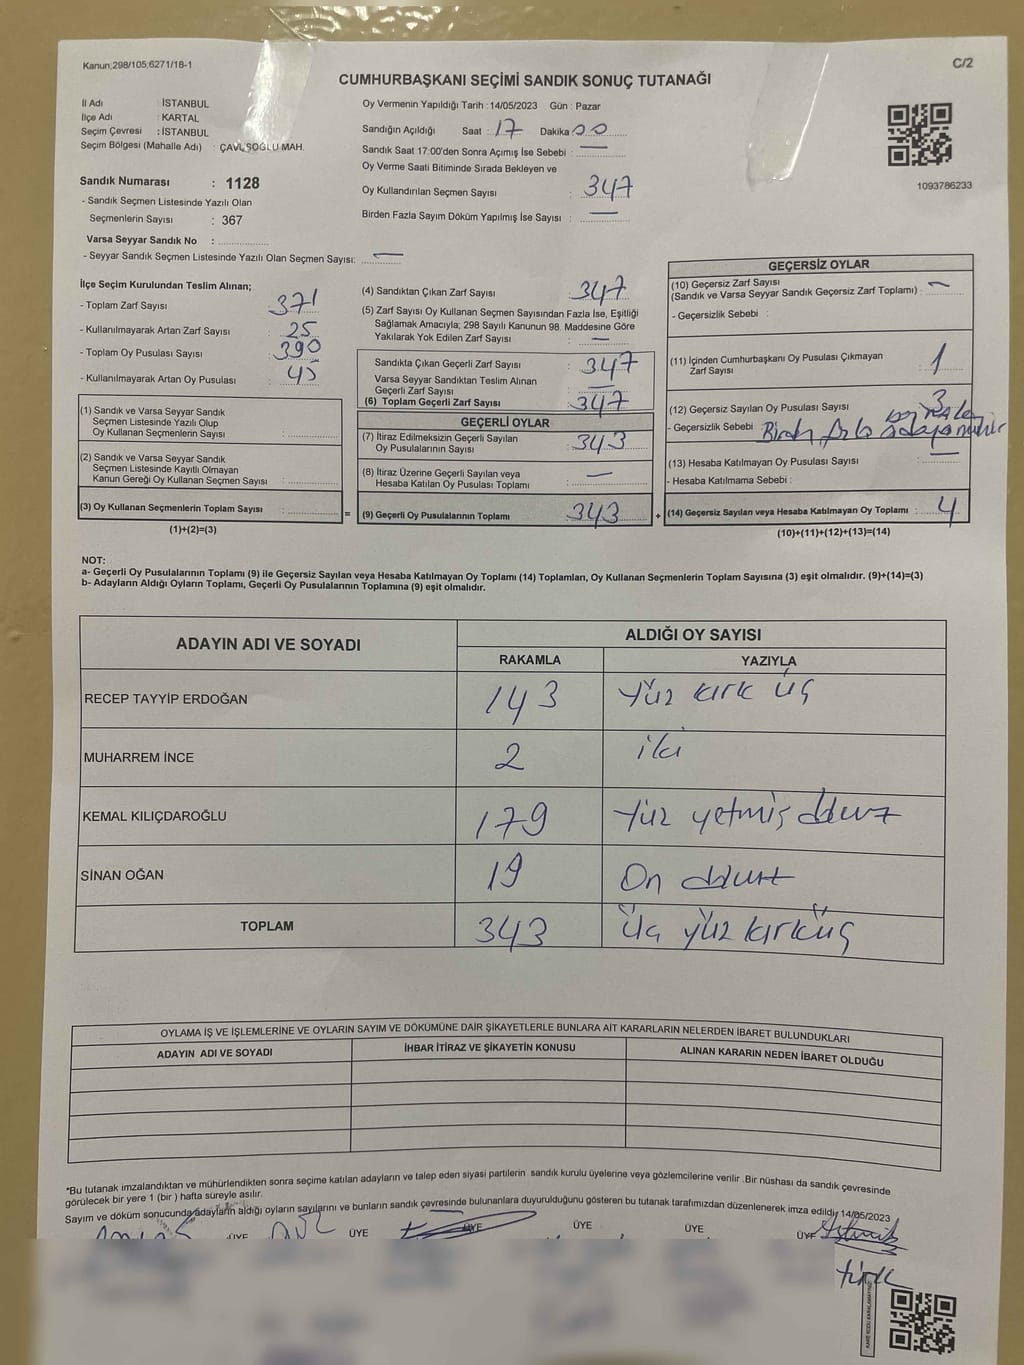 Kanun;298/105;6271/18-1
C/2
CUMHURBAŞKANI SEÇİMİ SANDIK SONUÇ TUTANAĞI
İl Adı : İSTANBUL
İlçe Adı : KARTAL
Seçim Çevresi : İSTANBUL
Seçim Bölgesi (Mahalle Adı) : ÇAVUŞOĞLU MAH.
Sandık Numarası : 1128
- Sandık Seçmen Listesinde Yazılı Olan
Seçmenlerin Sayısı : 367
Varsa Seyyar Sandık No :
- Seyyar Sandık Seçmen Listesinde Yazılı Olan Seçmen Sayısı: —
Oy Vermenin Yapıldığı Tarih : 14/05/2023 Gün : Pazar
Sandığın Açıldığı Saat : 17 Dakika 00
Sandık Saat 17:00'den Sonra Açımış İse Sebebi : —
Oy Verme Saati Bitiminde Sırada Bekleyen ve
Oy Kullandırılan Seçmen Sayısı : 347
Birden Fazla Sayım Döküm Yapılmış İse Sayısı : —
1093786233
İlçe Seçim Kurulundan Teslim Alınan;
- Toplam Zarf Sayısı : 371
- Kullanılmayarak Artan Zarf Sayısı : 25
- Toplam Oy Pusulası Sayısı : 390
- Kullanılmayarak Artan Oy Pusulası : 45
(1) Sandık ve Varsa Seyyar Sandık
Seçmen Listesinde Yazılı Olup
Oy Kullanan Seçmenlerin Sayısı :
(2) Sandık ve Varsa Seyyar Sandık
Seçmen Listesinde Kayıtlı Olmayan
Kanun Gereği Oy Kullanan Seçmen Sayısı :
(3) Oy Kullanan Seçmenlerin Toplam Sayısı :
(1)+(2)=(3)
(4) Sandıktan Çıkan Zarf Sayısı : 347
(5) Zarf Sayısı Oy Kullanan Seçmen Sayısından Fazla İse, Eşitliği
Sağlamak Amacıyla; 298 Sayılı Kanunun 98. Maddesine Göre
Yakılarak Yok Edilen Zarf Sayısı : —
Sandıkta Çıkan Geçerli Zarf Sayısı : 347
Varsa Seyyar Sandıktan Teslim Alınan
Geçerli Zarf Sayısı : —
(6) Toplam Geçerli Zarf Sayısı : 347
GEÇERLİ OYLAR
(7) İtiraz Edilmeksizin Geçerli Sayılan
Oy Pusulalarının Sayısı : 343
(8) İtiraz Üzerine Geçerli Sayılan veya
Hesaba Katılan Oy Pusulası Toplamı : —
= (9) Geçerli Oy Pusulalarının Toplamı : 343
GEÇERSİZ OYLAR
(10) Geçersiz Zarf Sayısı
(Sandık ve Varsa Seyyar Sandık Geçersiz Zarf Toplamı) : —
- Geçersizlik Sebebi :
(11) İçinden Cumhurbaşkanı Oy Pusulası Çıkmayan
Zarf Sayısı : 1
(12) Geçersiz Sayılan Oy Pusulası Sayısı : 3
- Geçersizlik Sebebi : Birden fazla adaya mühür
(13) Hesaba Katılmayan Oy Pusulası Sayısı : —
- Hesaba Katılmama Sebebi :
+ (14) Geçersiz Sayılan veya Hesaba Katılmayan Oy Toplamı : 4
(10)+(11)+(12)+(13)=(14)
NOT:
a- Geçerli Oy Pusulalarının Toplamı (9) ile Geçersiz Sayılan veya Hesaba Katılmayan Oy Toplamı (14) Toplamları, Oy Kullanan Seçmenlerin Toplam Sayısına (3) eşit olmalıdır. (9)+(14)=(3)
b- Adayların Aldığı Oyların Toplamı, Geçerli Oy Pusulalarının Toplamına (9) eşit olmalıdır.
ADAYIN ADI VE SOYADI ALDIĞI OY SAYISI
RAKAMLA YAZIYLA
RECEP TAYYİP ERDOĞAN 143 Yüz kırk üç
MUHARREM İNCE 2 iki
KEMAL KILIÇDAROĞLU 179 Yüz yetmiş dokuz
SİNAN OĞAN 19 On dokuz
TOPLAM 343 üç yüz kırküç
OYLAMA İŞ VE İŞLEMLERİNE VE OYLARIN SAYIM VE DÖKÜMÜNE DAİR ŞİKAYETLERLE BUNLARA AİT KARARLARIN NELERDEN İBARET BULUNDUKLARI
ADAYIN ADI VE SOYADI İHBAR İTİRAZ VE ŞİKAYETİN KONUSU ALINAN KARARIN NEDEN İBARET OLDUĞU
*Bu tutanak imzalandıktan ve mühürlendikten sonra seçime katılan adayların ve talep eden siyasi partilerin sandık kurulu üyelerine veya gözlemcilerine verilir .Bir nüshası da sandık çevresinde
görülecek bir yere 1 (bir ) hafta süreyle asılır.
Sayım ve döküm sonucunda adayların aldığı oyların sayılarını ve bunların sandık çevresinde bulunanlara duyurulduğunu gösteren bu tutanak tarafımızdan düzenlenerek imza edildi. 14/05/2023
ÜYE ÜYE ÜYE ÜYE ÜYE ÜYE